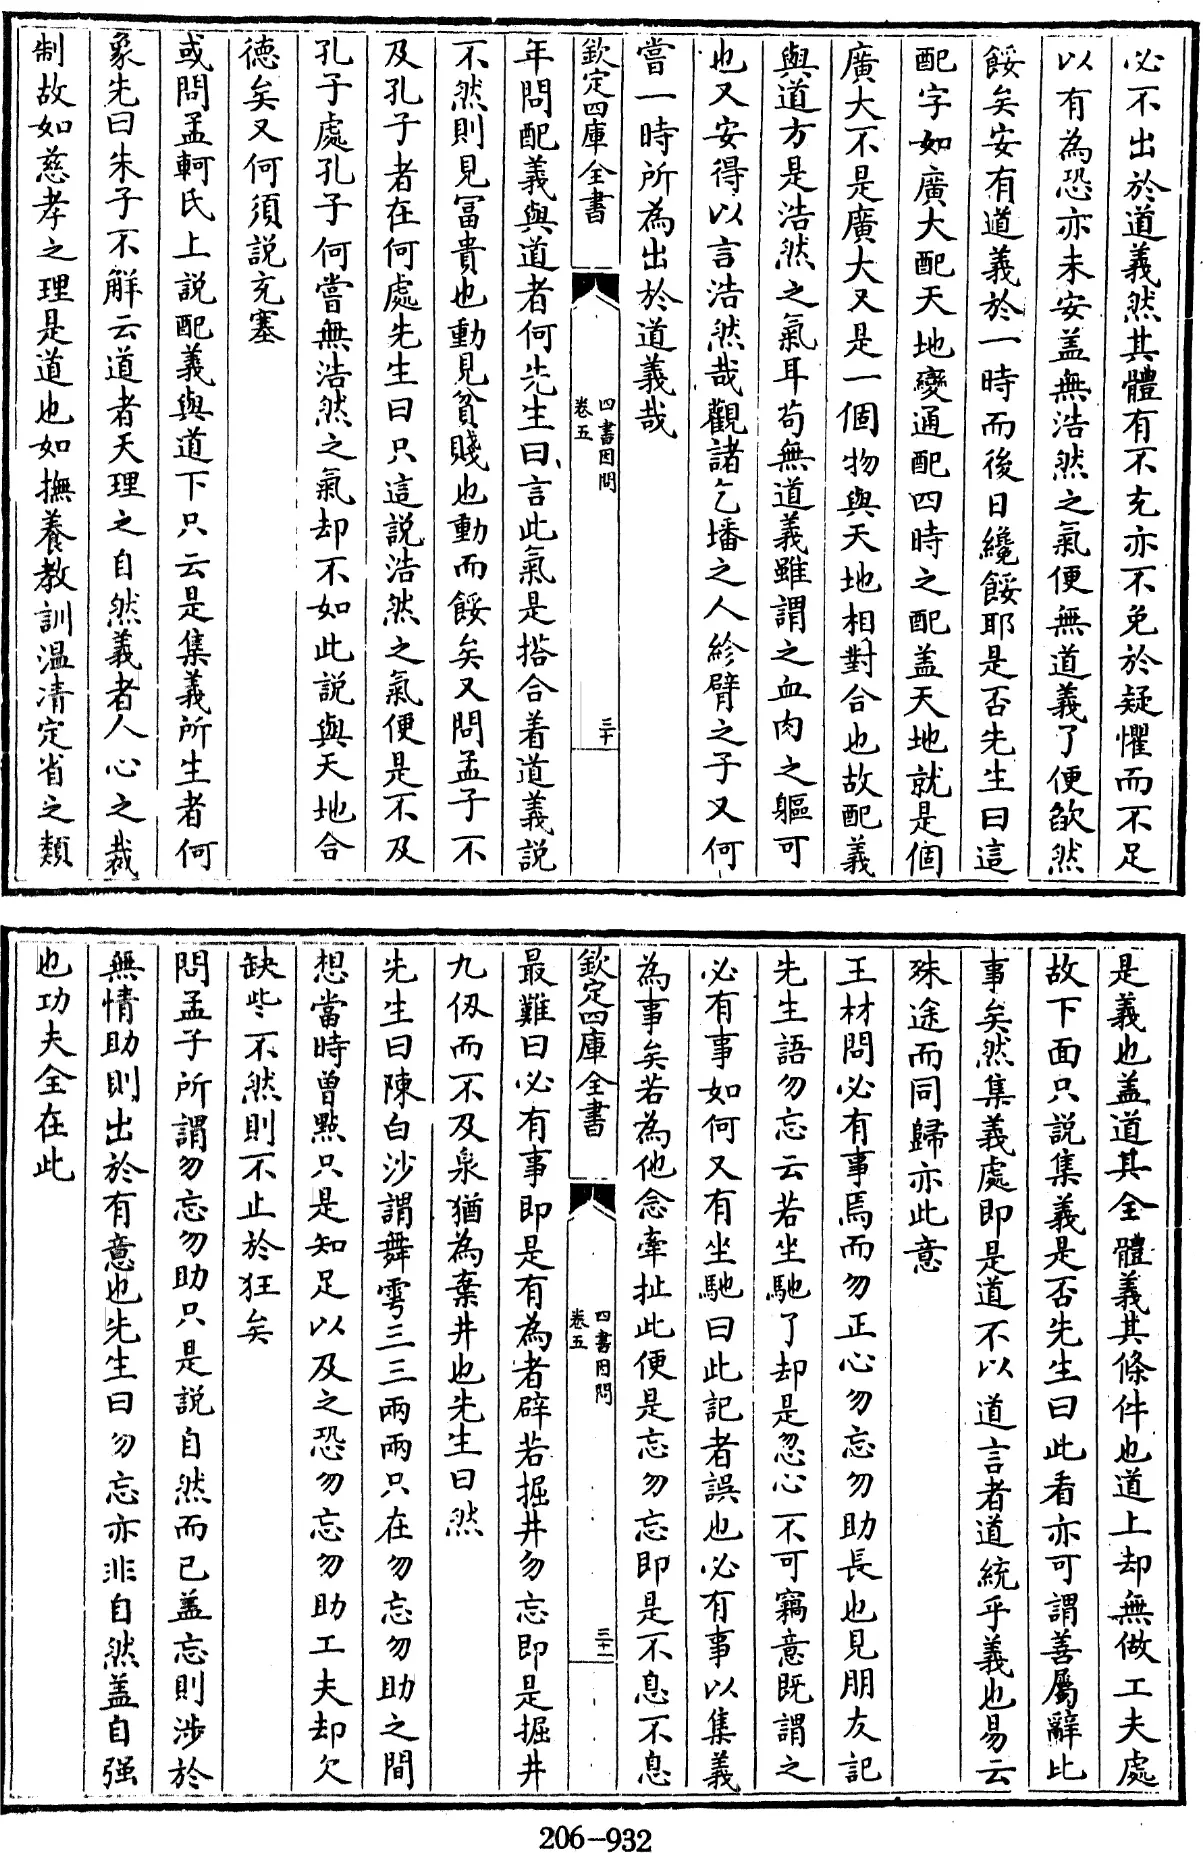 必不出於道義然其體有不充亦不免於疑懼而不足
以有為恐亦未安盖無浩然之氣便無道義了便欿然
餒矣安有道義於一時而後日纔餒耶是否先生曰這
配字如廣大配天地變通配四時之配盖天地就是個
廣大不是廣大又是一個物與天地相對合也故配義
與道方是浩然之氣耳苟無道義雖謂之血肉之軀可
也又安得以言浩然哉觀諸乞墦之人紾臂之子又何
嘗一時所為出於道義哉
欽定四庫全書
四書因問
卷五
三十
年問配義與道者何先生曰言此氣是搭合着道義説
不然則見冨貴也動見貧賤也動而餒矣又問孟子不
及孔子者在何處先生曰只這説浩然之氣便是不及
孔子處孔子何嘗無浩然之氣却不如此説與天地合
徳矣又何須説充塞
或問孟軻氏上説配義與道下只云是集義所生者何
象先曰朱子不解云道者天理之自然義者人心之裁
制故如慈孝之理是道也如撫養教訓温凊定省之類
是義也盖道其全體義其條件也道上却無做工夫處
故下面只説集義是否先生曰此看亦可謂善屬辭比
事矣然集義處即是道不以道言者道統乎義也易云
殊途而同歸亦此意
王材問必有事焉而勿正心勿忘勿助長也見朋友記
先生語勿忘云若坐馳了却是忽心不可竊意既謂之
必有事如何又有坐馳曰此記者誤也必有事以集義
為事矣若為他念牽扯此便是忘勿忘即是不息不息
欽定四庫全書
四書因問
卷五
三十一
最難曰必有事即是有為者辟若掘井勿忘即是掘井
九仭而不及泉猶為棄井也先生曰然
先生曰陳白沙謂舞雩三三兩兩只在勿忘勿助之間
想當時曽㸃只是知足以及之恐勿忘勿助工夫却欠
缺些不然則不止於狂矣
問孟子所謂勿忘勿助只是説自然而已盖忘則涉於
無情助則出於有意也先生曰勿忘亦非自然盖自强
也功夫全在此
206-932